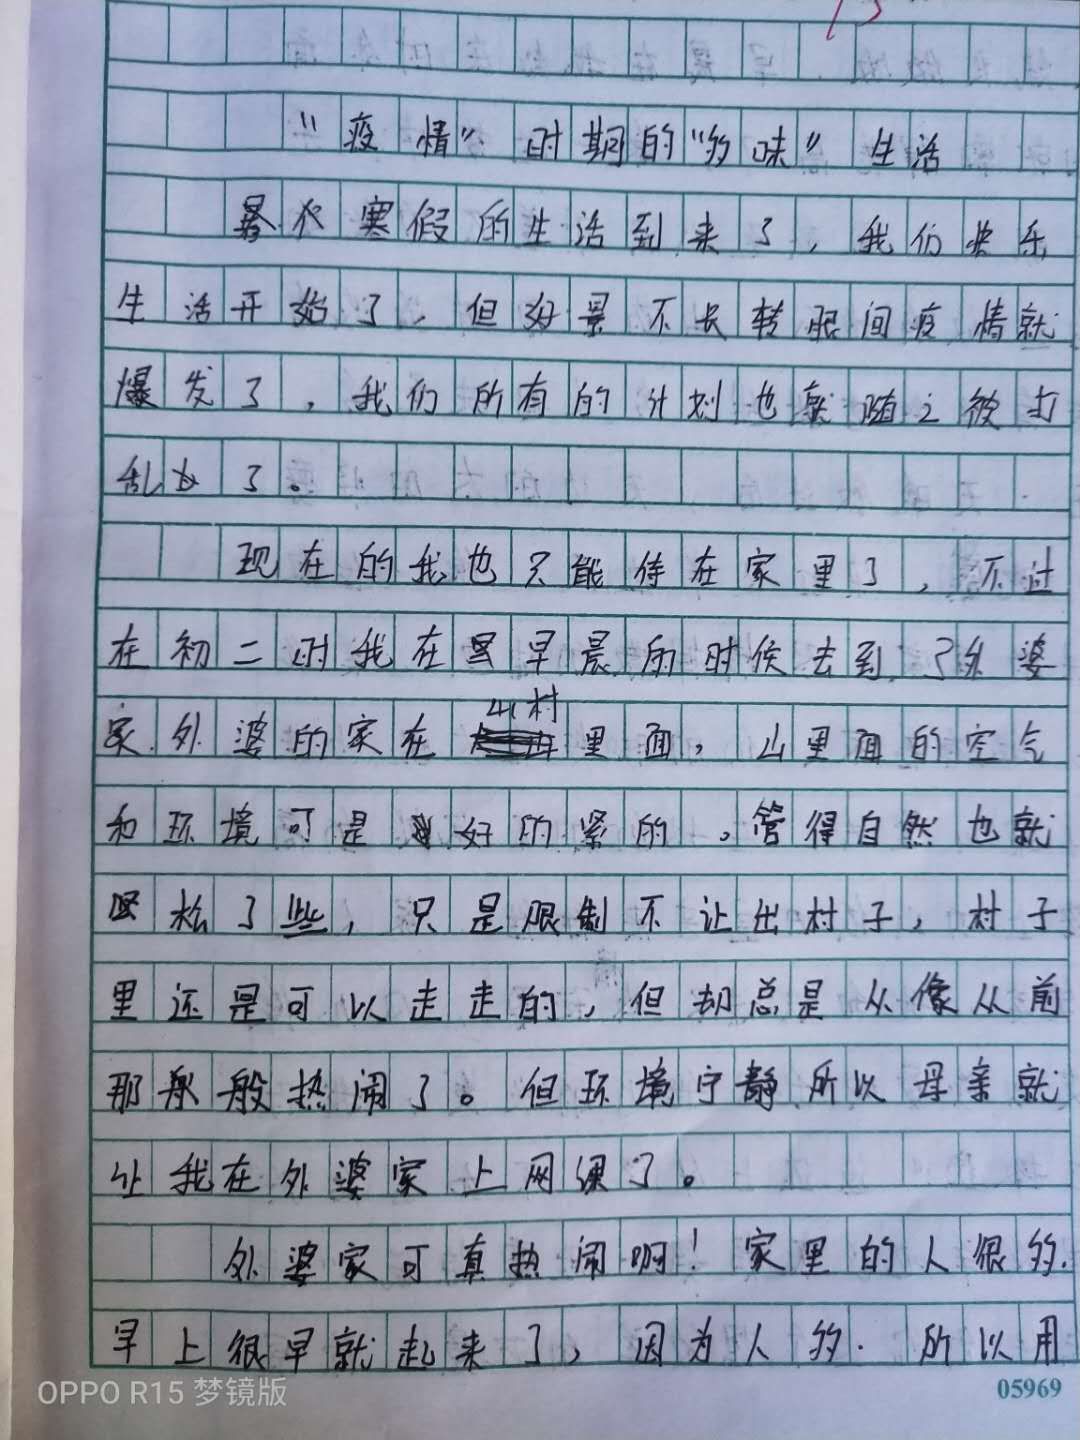 13
“疫情”时期的“多味”生活
寒假的生活到来了，我们快乐
生活开始了，但好景不长转眼间疫情就
爆发了，我们所有的计划也就随之被打
乱了。
现在的我也只能待在家里了，不过
在初二时我在早晨的时候去到了外婆
家.外婆的家在山村里面，山里面的空气
和环境可是好的紧的。管得自然也就
松了些，只是限制不让出村子，村子
里还是可以走走的，但却总是从像从前
那般般热闹了。但环境宁静所以母亲就
让我在外婆家上网课了。
外婆家可真热闹啊！家里的人很多.
早上很早就起来了，因为人多.所以用
OPPO R15 梦镜版
05969